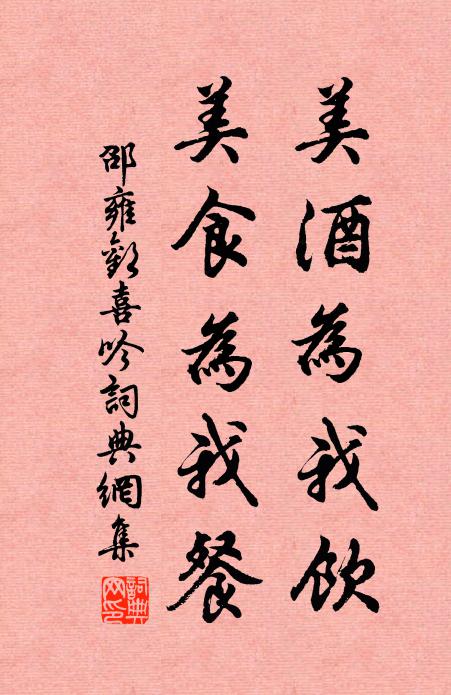 美酒為我飲
美食為我餐
邵雍歡喜吟詞典網集
詞典
网印